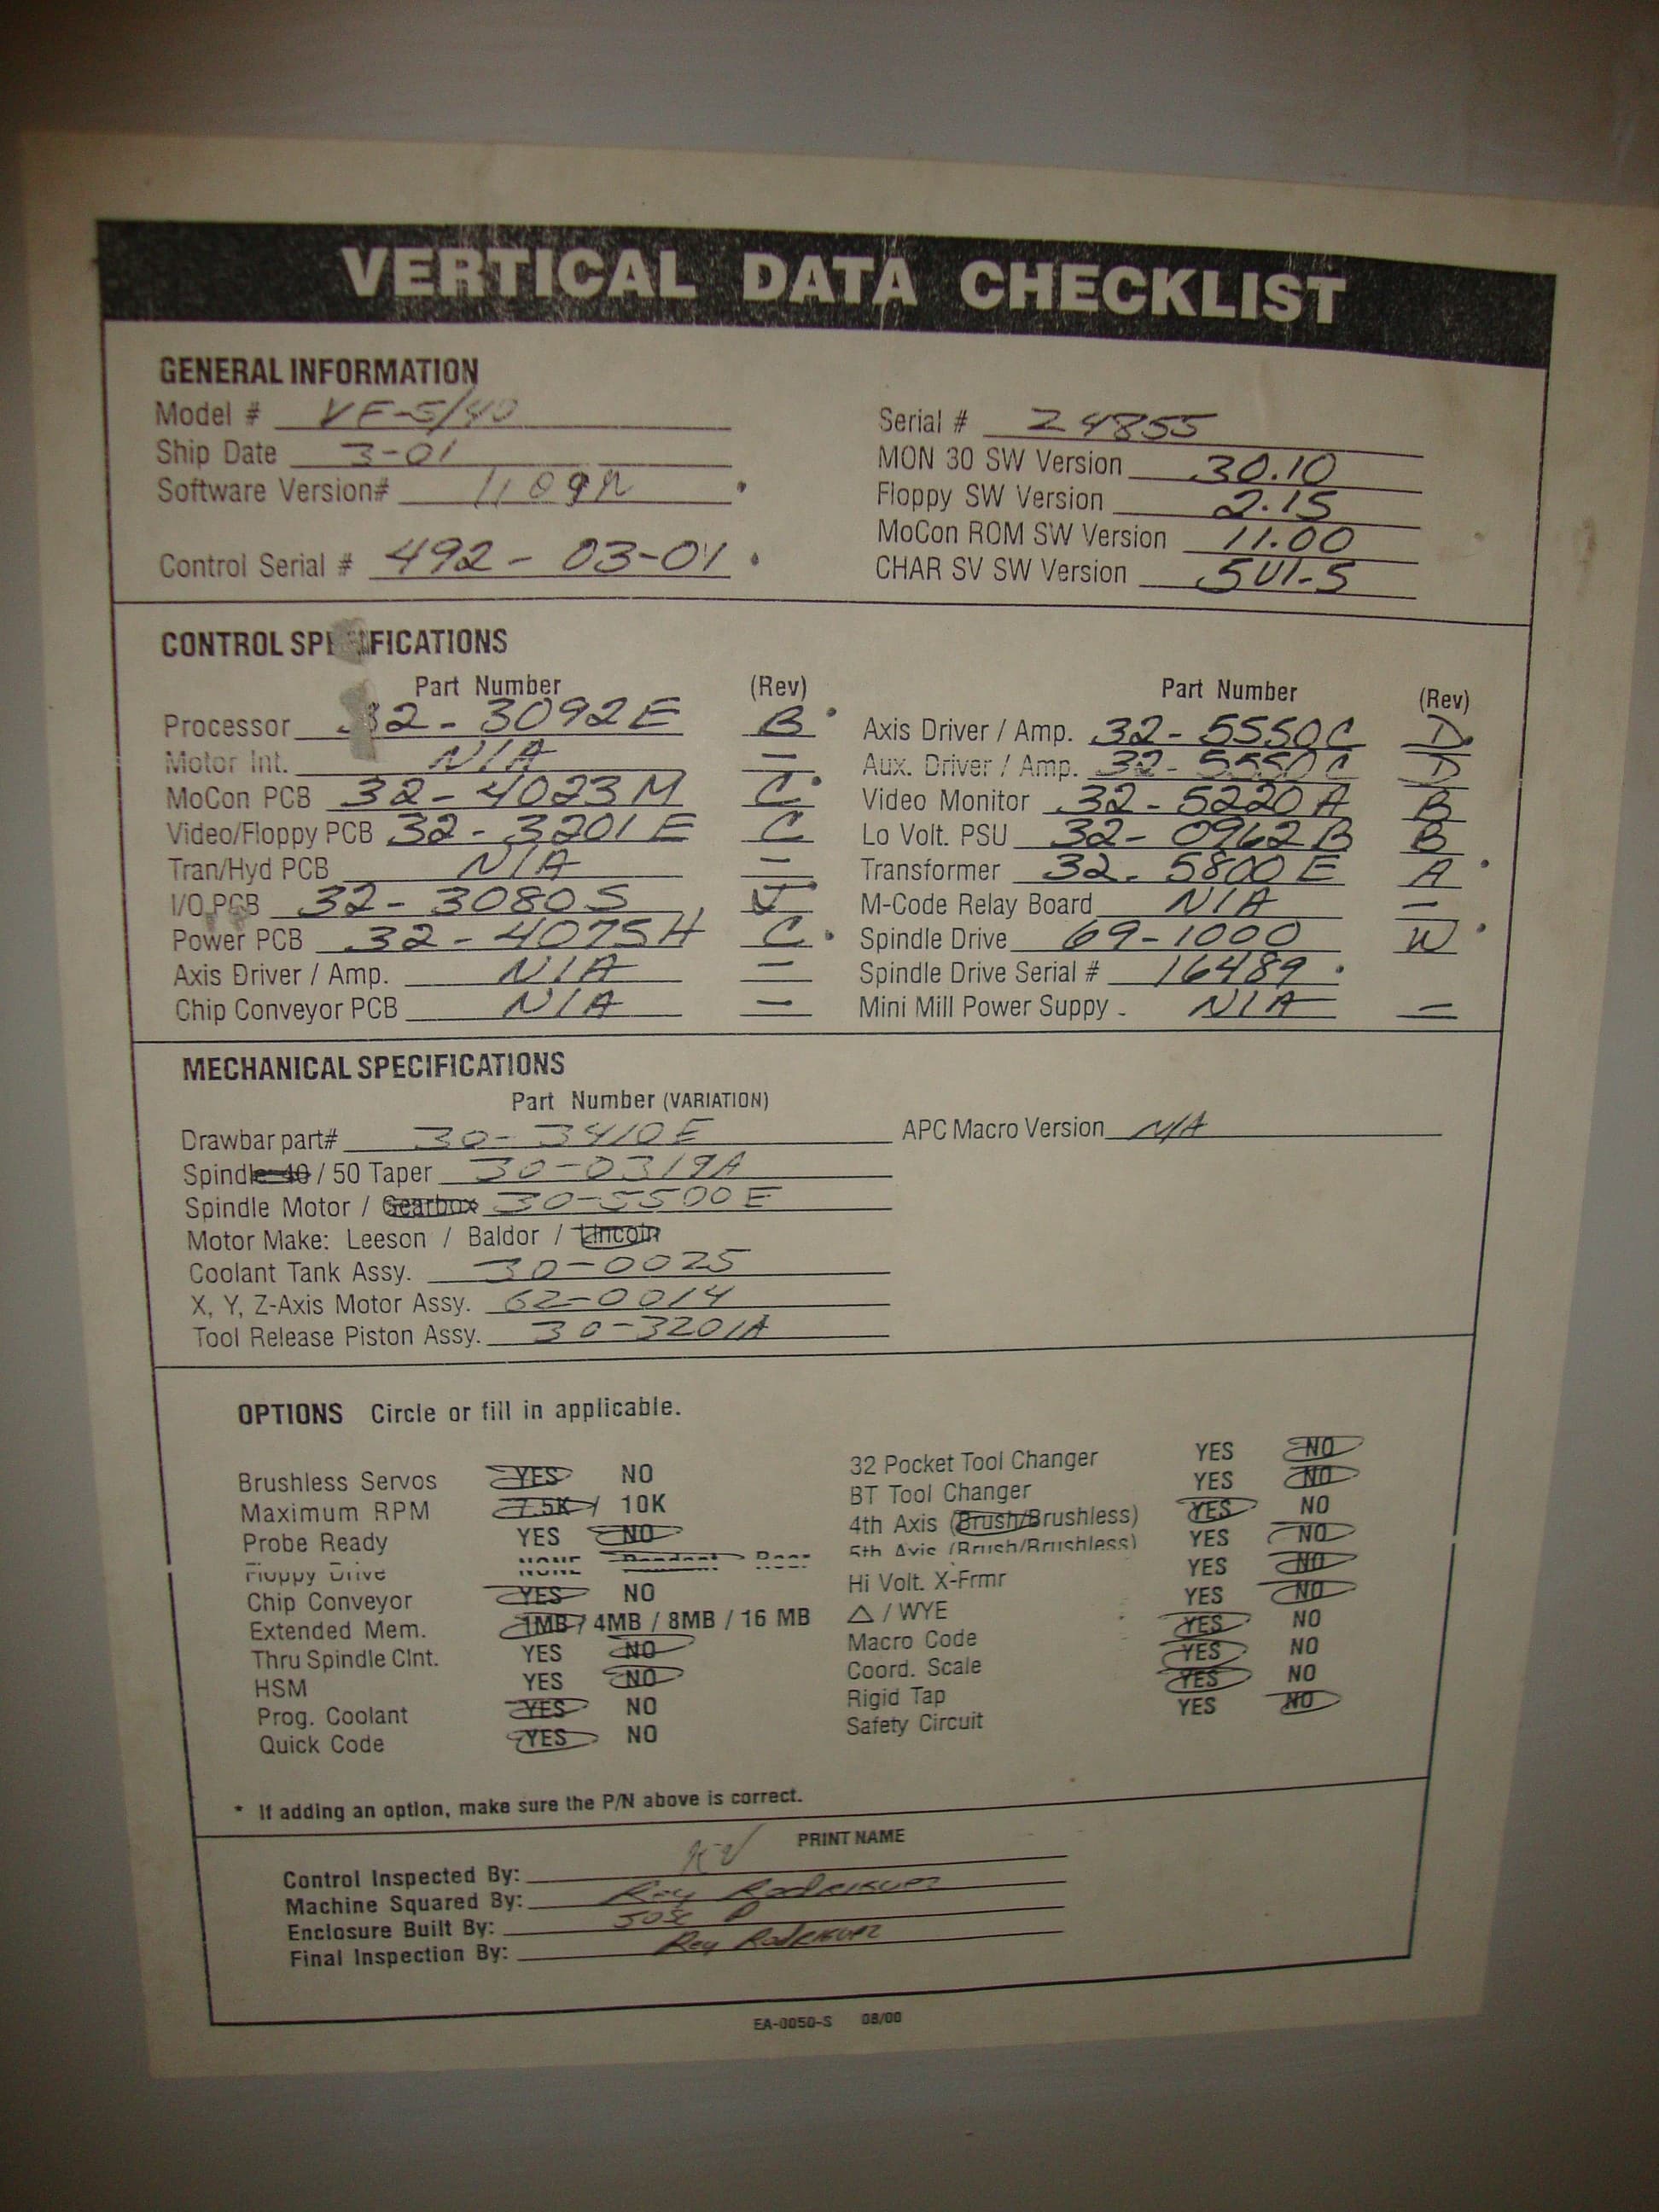 VERTICAL DATA CHECKLIST
GENERAL INFORMATION
Model # VF-5/40
Serial # 24855
Ship Date 3-01
MON 30 SW Version 30.10
Software Version#
Floppy SW Version 2.15
MoCon ROM SW Version 11.00
Control Serial # 492-03-01
CHAR SV SW Version
CONTROL SPE FICATIONS
Part Number (Rev) Part Number (Rev)
Processor 32-3092E B Axis Driver / Amp. 32-5550C D
Motor Int. N/A — Aux. Driver / Amp. 32-5550C D
MoCon PCB 32-4023M C Video Monitor 32-5220A B
Video/Floppy PCB 32-3201E C Lo Volt. PSU 32-0962B B
Tran/Hyd PCB N/A — Transformer 32-5800E A
I/O PCB 32-3080S J M-Code Relay Board N/A —
Power PCB 32-4075H C Spindle Drive 69-1000 W
Axis Driver / Amp. N/A — Spindle Drive Serial # 16489
Chip Conveyor PCB N/A — Mini Mill Power Suppy - N/A —
MECHANICAL SPECIFICATIONS
Part Number (VARIATION)
Drawbar part# 30-3410E APC Macro Version N/A
Spindle 40 / 50 Taper 30-0319A
Spindle Motor / Gearbox 30-5500E
Motor Make: Leeson / Baldor / Lincoln
Coolant Tank Assy. 30-0025
X, Y, Z-Axis Motor Assy. 62-0014
Tool Release Piston Assy. 30-3201A
OPTIONS Circle or fill in applicable.
Brushless Servos YES NO 32 Pocket Tool Changer YES NO
Maximum RPM 7.5K / 10K BT Tool Changer YES NO
Probe Ready YES NO 4th Axis (Brush/Brushless) YES NO
Floppy Drive NONE Pendant Rear 5th Axis (Brush/Brushless) YES NO
Chip Conveyor YES NO Hi Volt. X-Frmr YES NO
Extended Mem. 1MB / 4MB / 8MB / 16 MB △ / WYE YES NO
Thru Spindle Clnt. YES NO Macro Code YES NO
HSM YES NO Coord. Scale YES NO
Prog. Coolant YES NO Rigid Tap YES NO
Quick Code YES NO Safety Circuit YES NO
* If adding an option, make sure the P/N above is correct.
PRINT NAME
Control Inspected By:
Machine Squared By: Rey Rodriguez
Enclosure Built By: Jose
Final Inspection By: Rey Rodriguez
EA-0050-S 08/00